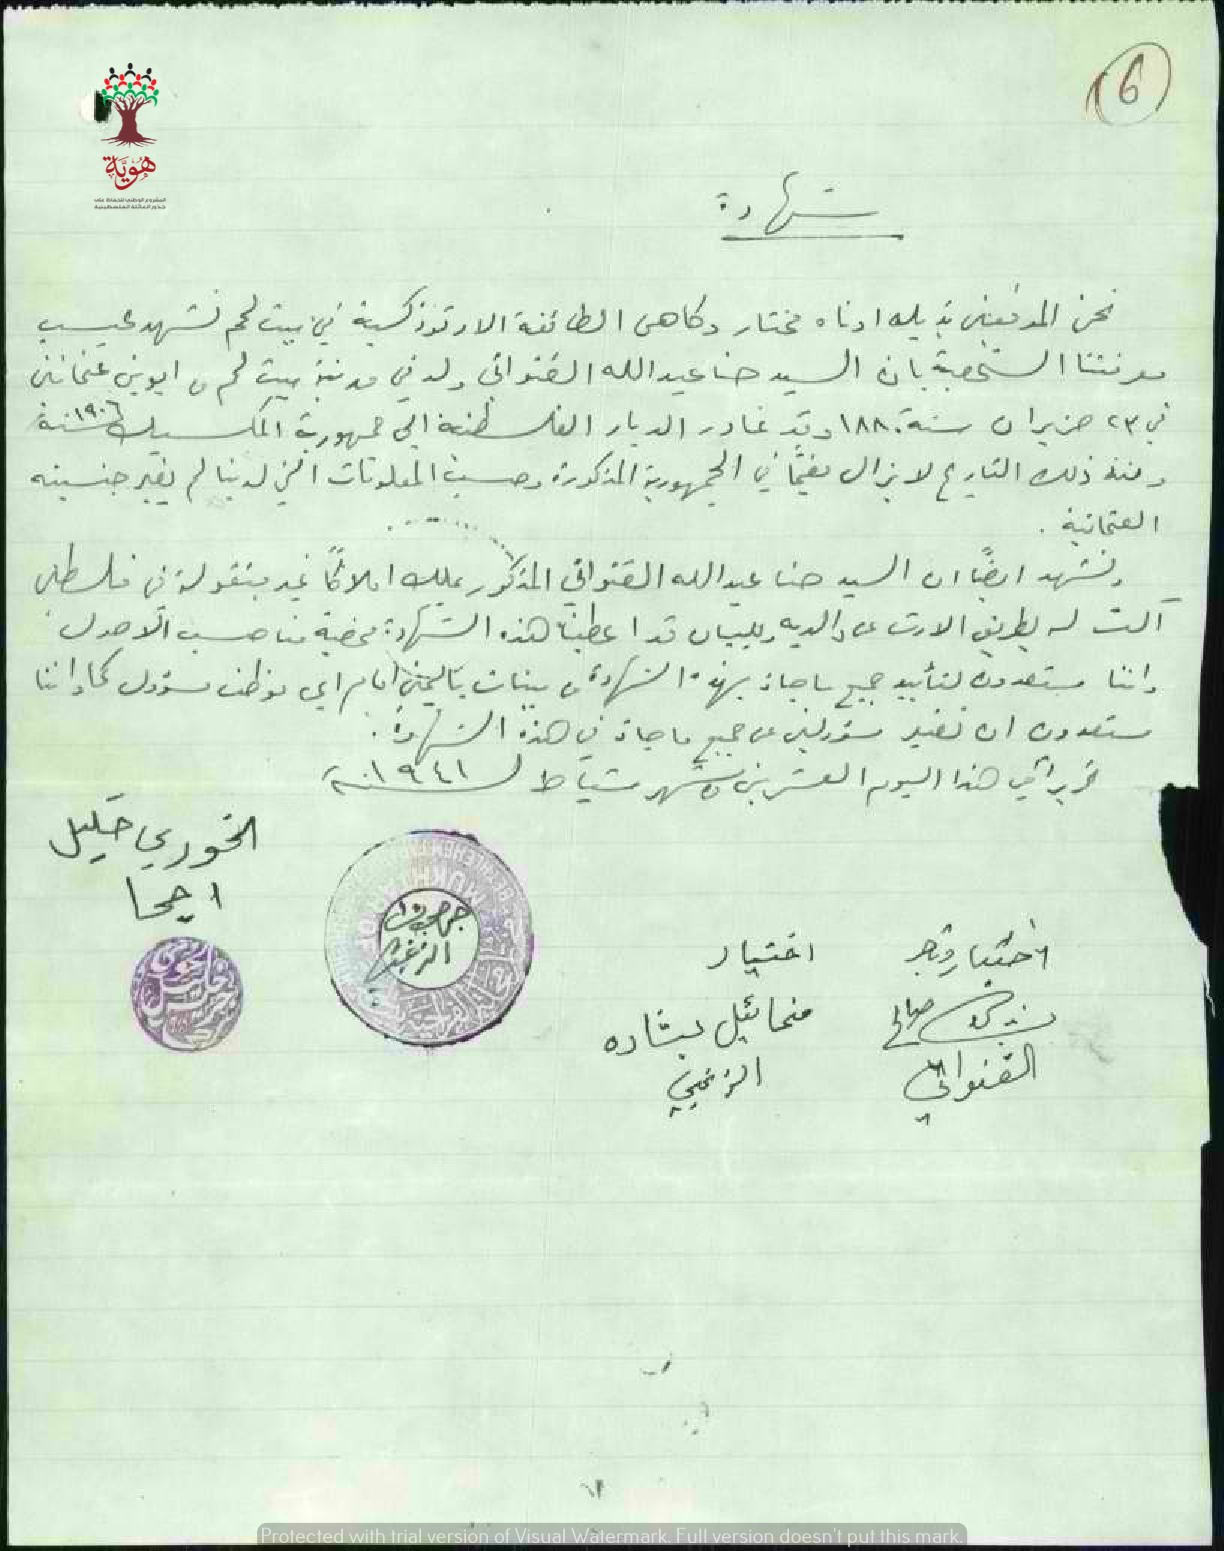 6
هوية
المشروع الوطني للحفاظ على
جذور العائلة الفلسطينية
شهادة
نحن الموقعين بذيله ادناه مختار وكاهن الطائفة الارثوذكسية في بيت لحم نشهد بحسب
معرفتنا الشخصية بان السيد حنا عبدالله القنواتي ولد في مدينة بيت لحم من ابوين عثمانيين
في ٢٣ حزيران سنة ١٨٨٠ وقد غادر الديار الفلسطينية الى جمهورية المكسيك سنة ١٩٠٦
ومنذ ذلك التاريخ لا يزال مقيماً في الجمهورية المذكورة وحسب المعلومات التي لدينا لم يغير جنسيته
العثمانية .
ونشهد ايضاً ان السيد حنا عبدالله القنواتي المذكور يملك املاكاً غير منقولة في فلسطين
آلت له بطريق الارث عن والديه وللبيان قد اعطيناه هذه الشهادة ممضية منا حسب الاصول
واننا مستعدون لتأييد جميع ما جاء بهذه الشهادة من بينات باليمين امام اي موظف مسؤول كما واننا
مستعدون ان نعتبر مسؤولين عن جميع ما جاء في هذه الشهادة .
تحريراً في هذا اليوم العشرين من شهر شباط لسنة ١٩٤١
الخوري خليل
اختيار
اختيار
ميخائيل بشاره
صالح
القنواتي